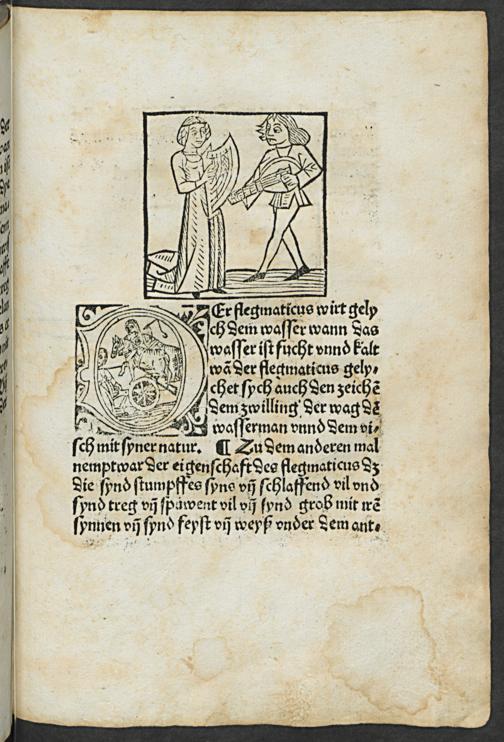 DEr flegmaticus wirt gely
ch dem wasser wann das
wasser ist fücht vnnd kalt
wā der flegmaticus gely⸗
chet sych auch den zeichē
dem zwilling der wag dē
wasserman vnnd dem vi⸗
sch mit syner natur. ¶ Zu dem anderen mal
nempt war der eigenschaft des flegmaticus dz
die synd stumpffes syns vn̄ schlaffend vil vnd
synd treg vn̄ spüwent vil vn̄ synd grob mit irē
synnen vn̄ synd feyst vn̄ weyß vnder dem ant⸗